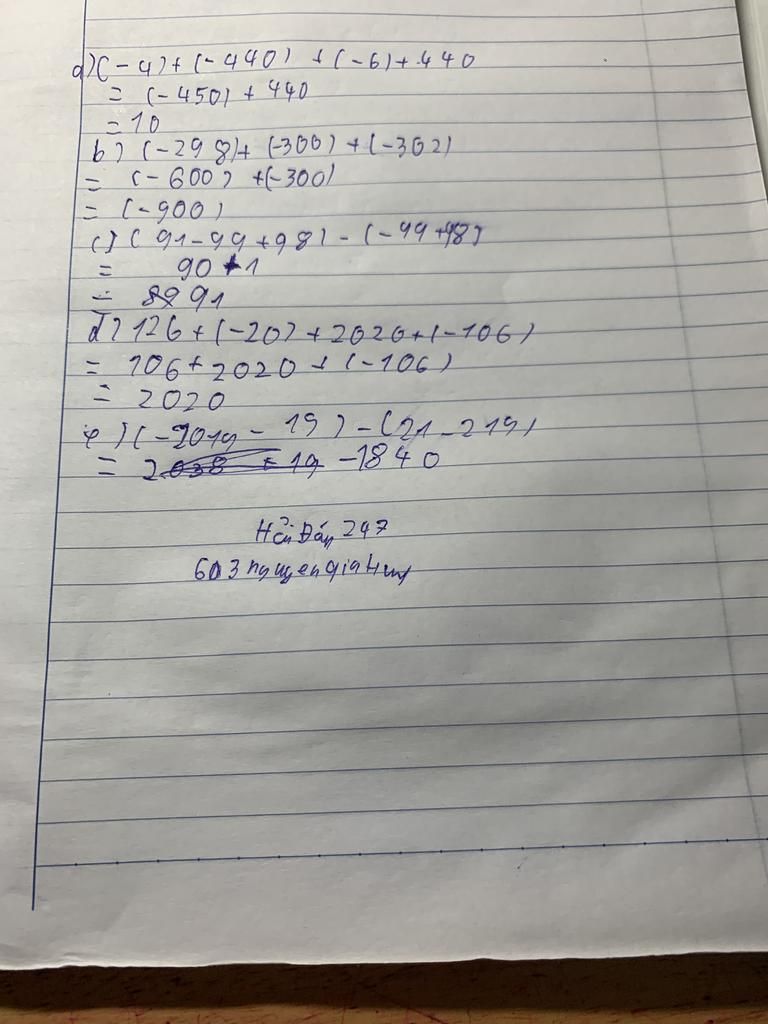 a) (-4) + (-440) + (-6) + 440
= (-450) + 440
= 10
b) (-298) + (-300) + (-302)
= (-600) + (-300)
= (-900)
c) (91-99+98) - (-99+98)
= 90 + 1
= 91
d) 126 + (-20) + 2020 + (-106)
= 106 + 2020 + (-106)
= 2020
e) (-2019 - 19) - (21 - 219)
= -1840
Hỏi Đáp 247
603 nguyengiahuy